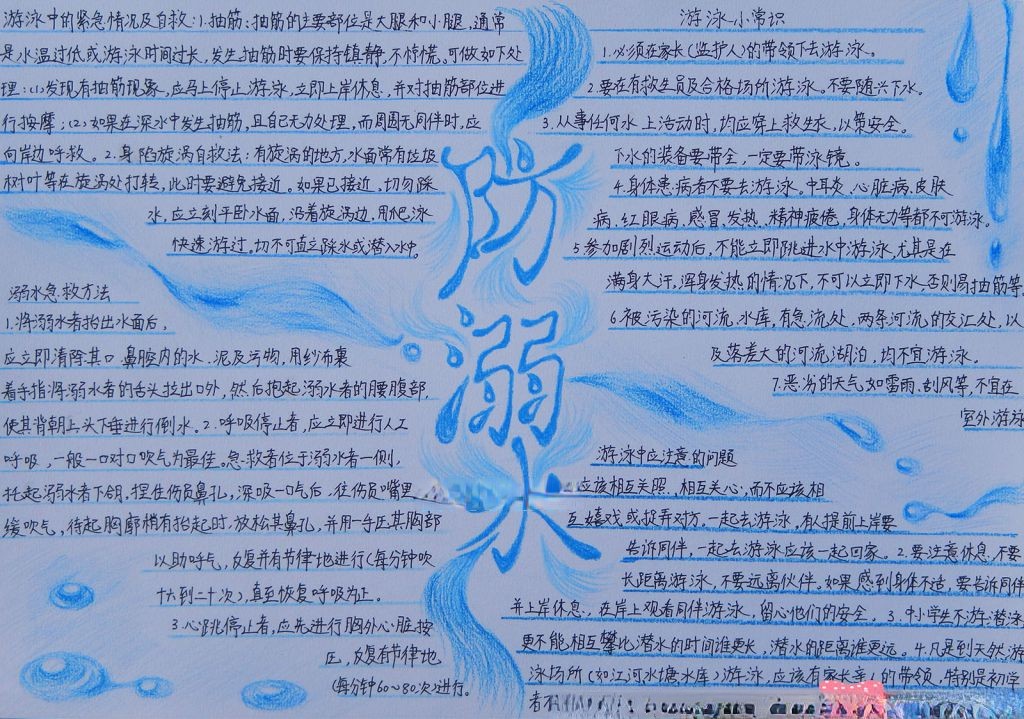 游泳中的紧急情况及自救:1.抽筋:抽筋的主要部位是大腿和小腿,通常
是水温过低或游泳时间过长,发生抽筋时要保持镇静,不惊慌。可做如下处
理:(1)发现有抽筋现象,应马上停止游泳,立即上岸休息,并对抽筋部位进
行按摩;(2)如果在深水中发生抽筋,且自己无力处理,而周围无同伴时,应
向岸边呼救。2.身陷旋涡自救法:有旋涡的地方,水面常有垃圾
树叶等在旋涡处打转,此时要避免接近。如果已接近,切勿踩
水,应立刻平卧水面,沿着旋涡边,用爬泳
快速游过。切不可直立踩水或潜入水中。
溺水急救方法
1.将溺水者抬出水面后,
应立即清除其口 鼻腔内的水、泥及污物,用纱布裹
着手指将溺水者的舌头拉出口外,然后抱起溺水者的腰腹部,
使其背朝上头下垂进行倒水。2.呼吸停止者,应立即进行人工
呼吸,一般一口对口吹气为最佳。急救者位于溺水者一侧,
托起溺水者下颌,捏住伤员鼻孔,深吸一口气后,往伤员嘴里
缓吹气,待起胸廓稍有抬起时,放松其鼻孔,并用一手压其胸部
以助呼气,反复并有节律地进行(每分钟吹
十六到二十次),直至恢复呼吸为正。
3.心跳停止者,应先进行胸外心脏按
压,反复有节律地
(每分钟60~80次)进行。
防
溺
水
游泳小常识
1.必须在家长(监护人)的带领下去游泳。
2.要在有救生员及合格场所游泳。不要随兴下水。
3.从事任何水上活动时,均应穿上救生衣,以策安全。
下水的装备要带全,一定要带泳镜。
4.身体患病者不要去游泳。中耳炎、心脏病、皮肤
病、红眼病、感冒、发热、精神疲倦、身体无力等都不可游泳。
5.参加剧烈运动后,不能立即跳进水中游泳,尤其是在
满身大汗,浑身发热的情况下,不可以立即下水,否则易抽筋等。
6.被污染的河流、水库,有急流处,两条河流的交汇处,以
及落差大的河流湖泊,均不宜游泳。
7.恶劣的天气如雷雨、刮风等,不宜在
室外游泳
游泳中应注意的问题
应该相互关照,相互关心,而不应该相
互嬉戏或捉弄对方。一起去游泳,有人提前上岸要
告诉同伴,一起去游泳应该一起回家。2.要注意休息,不要
长距离游泳,不要远离伙伴。如果感到身体不适,要告诉同伴
并上岸休息,在岸上观看同伴游泳,留心他们的安全。3.中小学生不游潜泳
更不能相互攀比潜水的时间谁更长,潜水的距离谁更远。4.凡是到天然游
泳场所(如江河水塘水库)游泳,应该有家长亲人的带领,特别是初学
者不